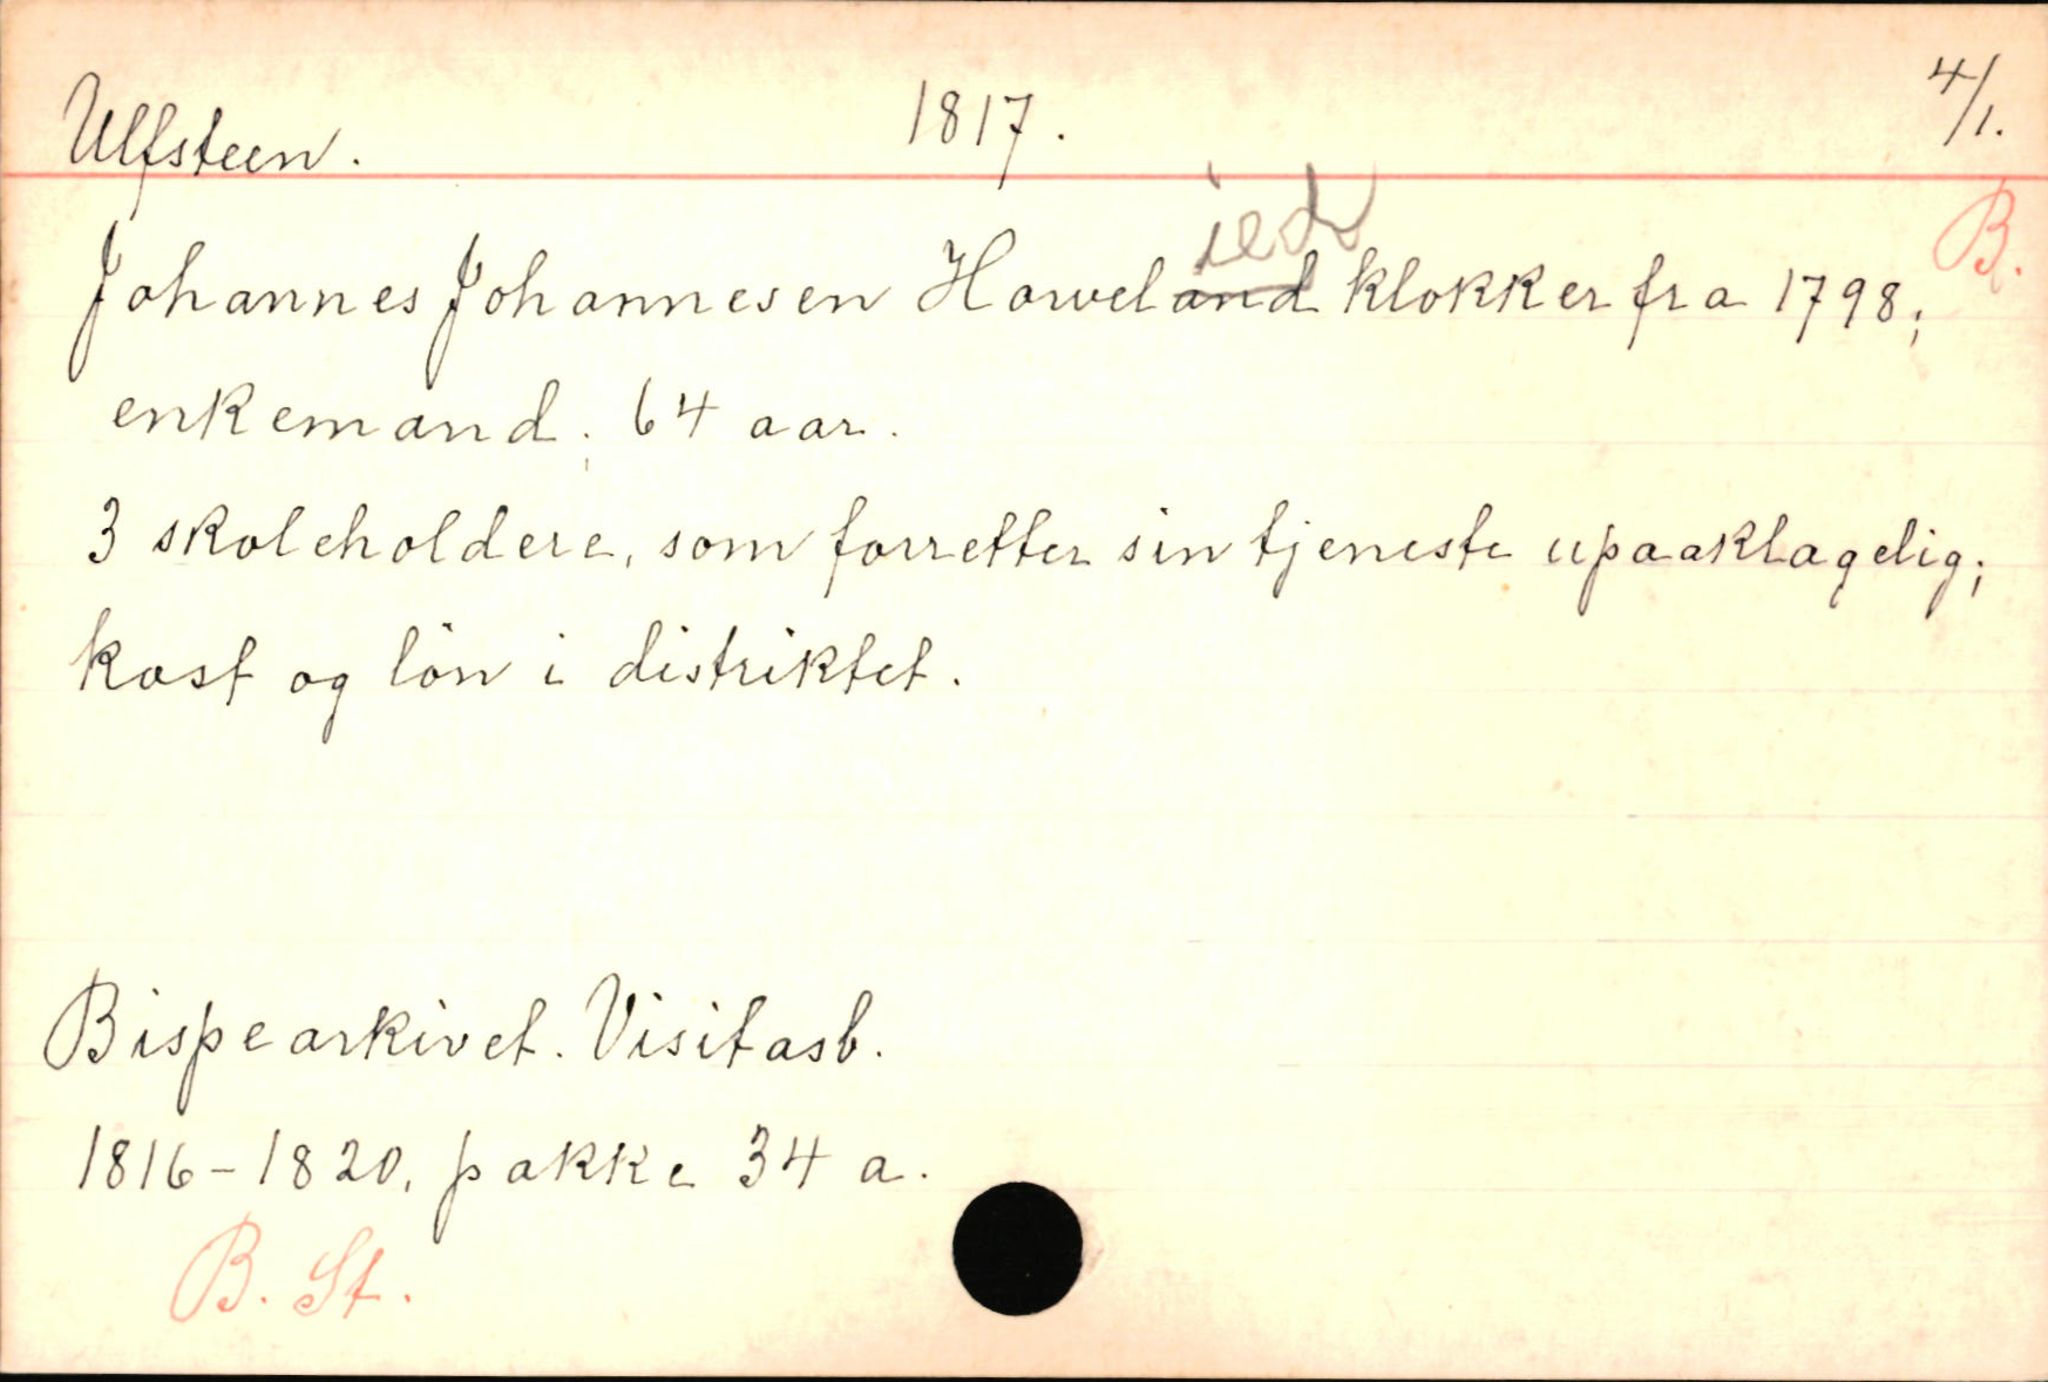 Ulfsteen. 1817. 4/1.
B.
Johannes Johannesen Howeland klokker fra 1798;
enkemand; 64 aar.
3 skoleholdere, som forretter sin tjeneste upaaklagelig;
kost og lön i distriktet.
Bispearkivet. Visitasb.
1816-1820, pakke 34 a.
B. St.